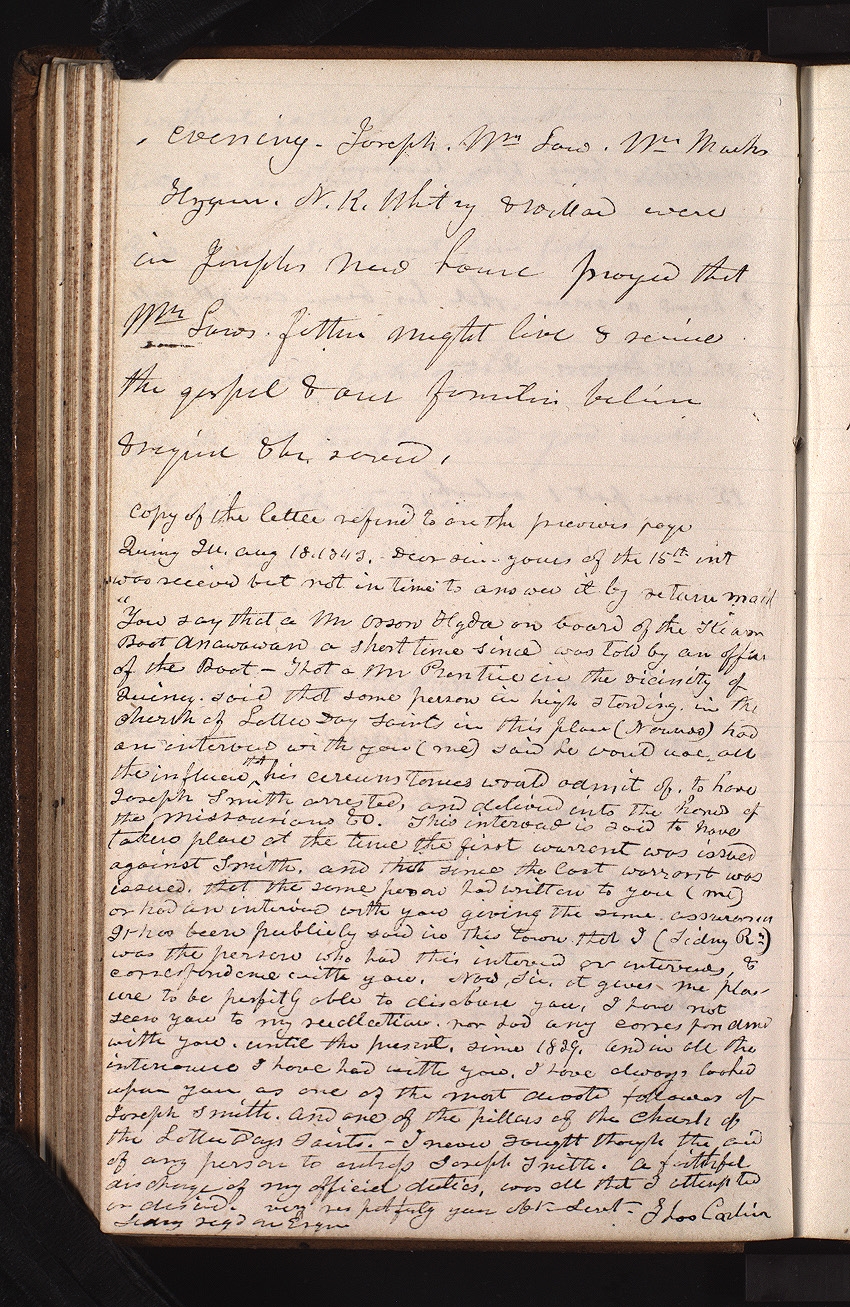 evening - Joseph. Wm Law. Wm Marks
Hyrum. N. K. Whitny & Willard were
in Josephs new house prayed that
Wm Laws. father might live & receive
the gospel & our families believe
& & be saved,
Copy of the letter refered to on the previous page
Quincy Ill. Aug 18. 1843. - Dear sir - yours of the 15th int
was received but not in time to answer it by return mail
"You say that a Mr Orson Hyde on board of the Steam
Boat Anawawan a short time since was told by an officer
of the Boat - That a Mr Prentice in the vicinity of
Quincy. said that some person in high standing. in the
church of Latter Day Saints in this place (Nauvoo) had
an interview with you (me) said he would use, all
the influence tht his circumstances would admit of, to have
Joseph Smith arrested, and delivered into the hands of
the Missourians &c. This interview is said to have
taken place at the time the first warrent was issued
against Smith. and that since the last warrant was
issued. that the same person had written to you (me)
or had an interview with you giving the same. assurances
It has been publicly said in this town that I (Sidny Rn)
was the person who had this interview or interviews, &
correspondence with you. Now, Sir, it gives me pleas-
ure to be perfitly able to disabuse you, I have not
seen you to my recollection. nor had any correspondence
with you. until the present. since 1839. and in all the
interviews I have had with you. I have always looked
upon you as one of the most devote followers of
Joseph Smith. and one of the pillars of the church of
the Latter Days Saints. - I never sought though the aid
of any person to entrap Joseph Smith. A faithful
discharge of my official duties, was all that I attempted
or desired. very respctfuly your obt - Servt - Thos Carlin
Sidny Rigdon Esqu